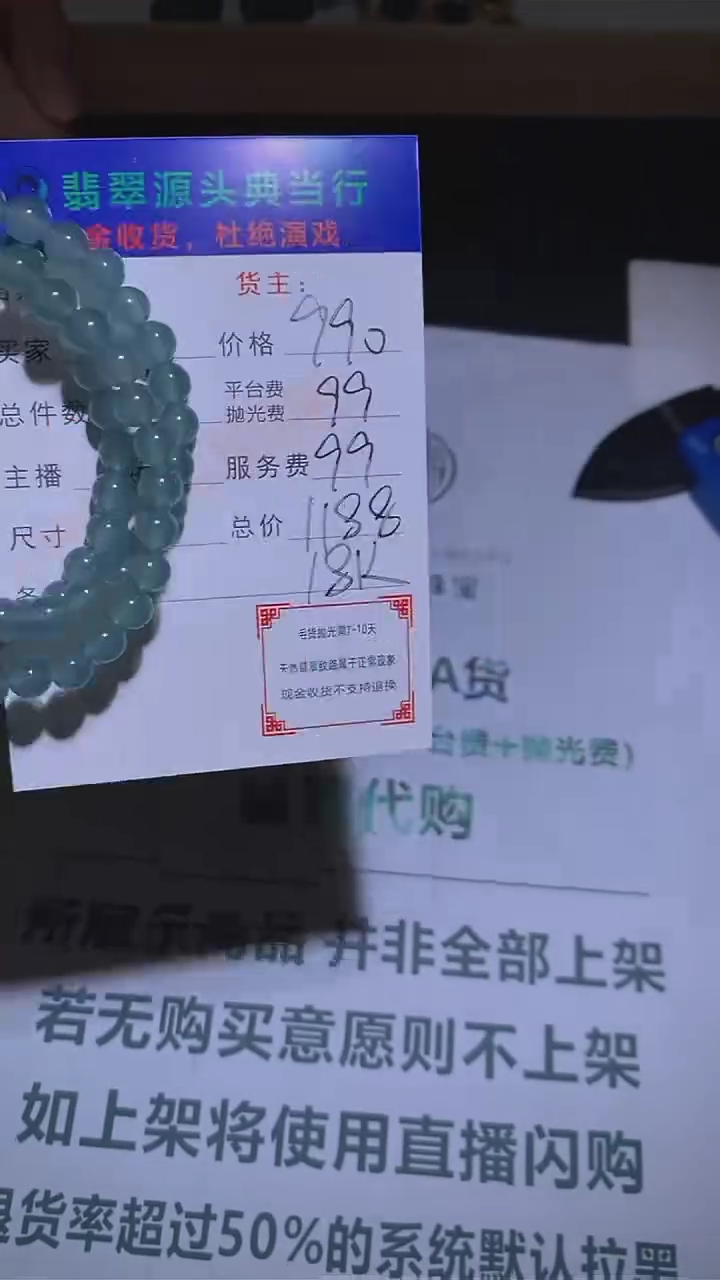 翡翠源头典当行
金收货，杜绝演戏
货主：
买家
价格 990
总件数
平台费
抛光费 99
主播
服务费 99
尺寸
总价 1188
18K
毛货抛光需7-10天
天然翡翠纹路属于正常现象
现金收货不支持退换
A货
台费+抛光费）
代购
所展示商品 并非全部上架
若无购买意愿则不上架
如上架将使用直播闪购
退货率超过50%的系统默认拉黑